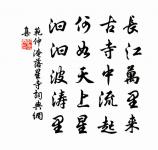 長江萬里来
古寺中流起
何如天上星
汩汩波涛里
範仲淹落星寺詞典網
集